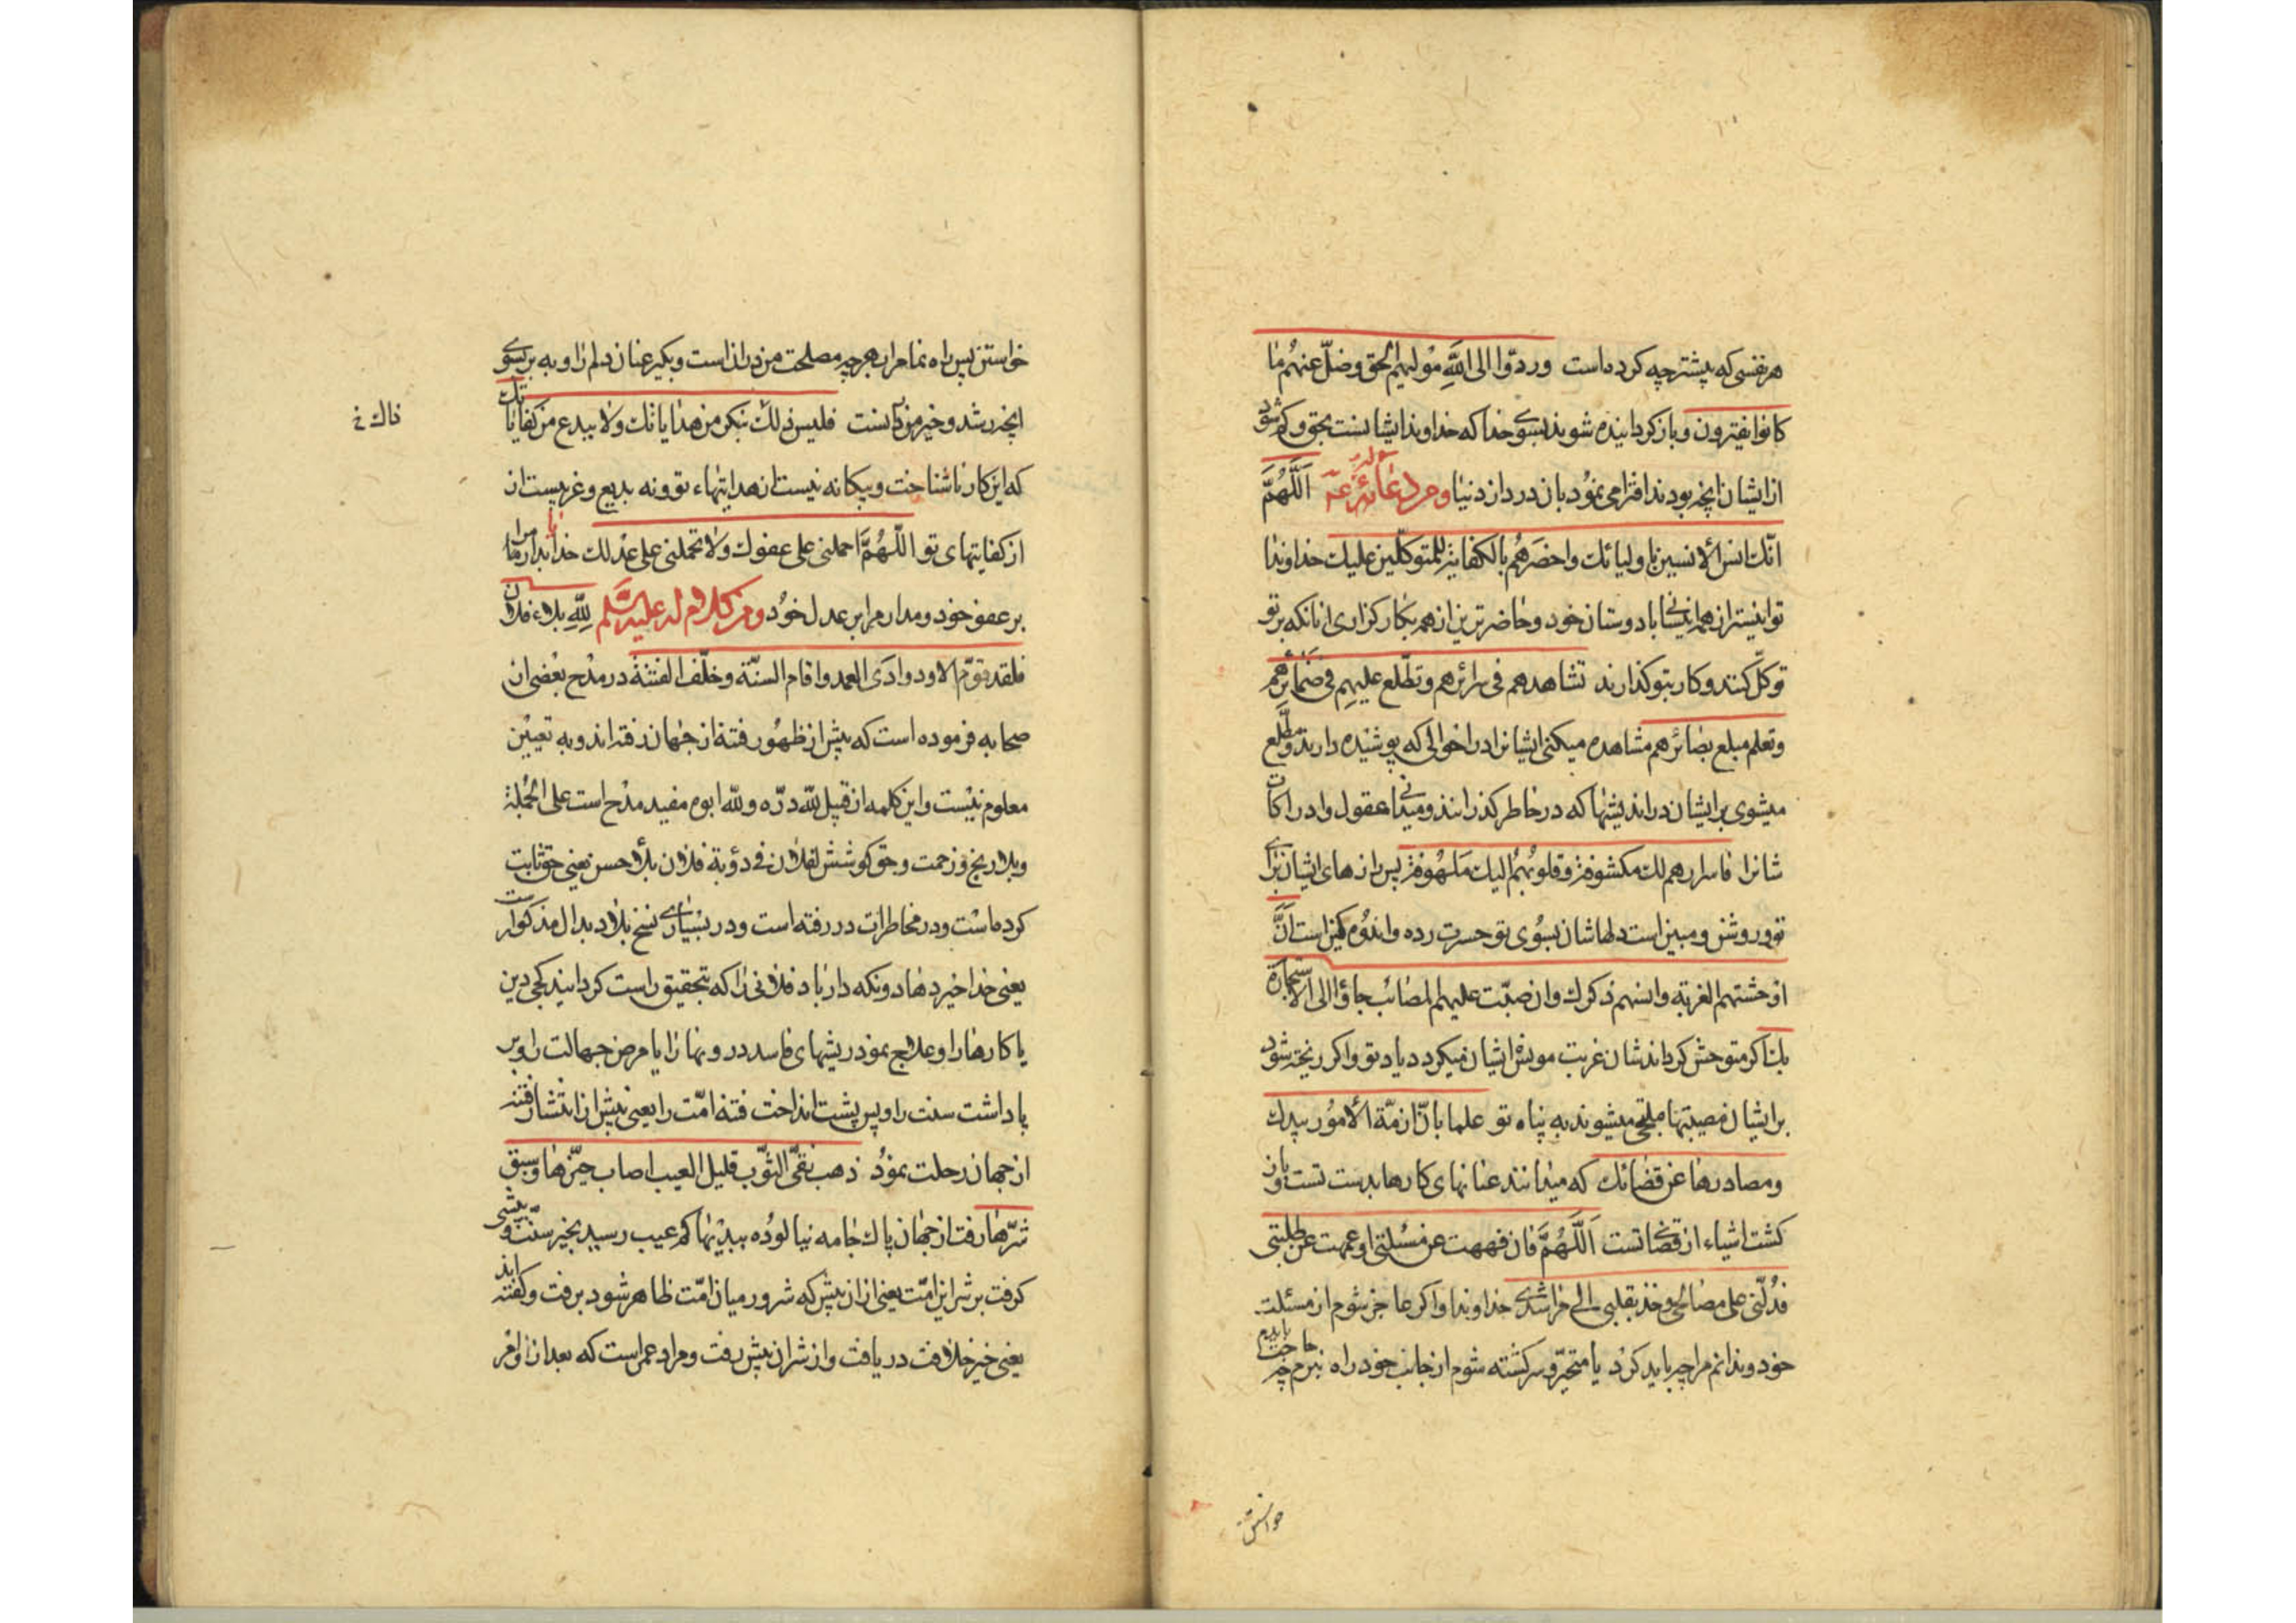 هر نفسی که پیشتر چه کرده است وردّوا الی اللّه مولیهم الحق وضلّ عنهم ما
کانوا یفترون وباز کردانیده شوند بسوی خدا که خداوند ایشانست بحق وکم شود
از ایشان انچه بودند افترا می نمود بان در دار دنیا ومن دعائه ع‍ه اللّهمّ
انّک انس الانسین باولیائک واحضرهم بالکفایة للمتوکلین علیک خداوندا
تو انیس‌تر از همه انیسانی با دوستان خود وحاضرترین از همه بکار کزاری انانکه بر تو
توکل کنند وکار بتو کذارند تشاهدهم فی سرائرهم وتطّلع علیهم فی ضمائرهم
وتعلم مبلغ بصائرهم مشاهده میکنی ایشانرا در احوالی که پوشیده دارند ومطّلع
میشوی بر ایشان در اندیشها که در خاطر کذرانند ومیدانی عقول وادراکات
شانرا فاسرارهم لک مکشوفة وقلوبهم الیک ملهوفة پس رازهای ایشان برای
تو روشن ومبین است دلهاشان بسوی تو حسرت زده واندوه کین است انّ
اوحشتهم الغربة وانسهم ذکرک وان صبّت علیهم المصائب جاؤا الی الاستجارة
بک اکر متوحش کرداندشان غربت مونس ایشان میکردد یاد تو واکر ریخته شود
بر ایشان مصیبتها ملتجی میشوند به پناه تو علما بانّ ازمّة الامور بیدک
ومصادرها عن قضائک که میدانند عنانهای کارها بدست تست وباز
کشت اشیاء از قضای تست اللّهمّ فان فههت عن مسئلتی او عمهت عن طلبتی
فدلّنی علی مصالحی وخذ بقلبی الی مراشدی خداوندا واکر عاجز شوم از مسئلت
خود وندانم مرا چه باید کرد یا متحیّر وسرکشته شوم از جانب خود راه نبرم چه حاجت بایدم
خواستن
خواستن پس راه نما مرا بهر چه مصلحت من در انست وبکیر عنان دلم را وبه بر بسوی
انچه رشد وخیر من در انست فلیس ذلک بنکر من هدایاتک ولا ببدع من کفایاتک
ذاک خ
که این کار ناشناخت وبیکانه نیست از هدایتهاء تو ونه بدیع وغریبست از
از کفایتهای تو اللّهمّ احملنی علی عفوک ولا تحملنی علی عدلک خدایا بدار مرا
بر عفو خود ومدار مرا بر عدل خود ومن کلام له علیه السّلم للّه بلاء فلان
فلقد قوّم الاود وادَی العمد واقام السنّة وخلّف الفتنة در مدح بعضی از
صحابه فرموده است که پیش از ظهور فتنه از جهان رفته اند وبه تعیین
معلوم نیست واین کلمه از قبیل للّه درّه وللّه ابوه مفید مدح است علی الجملة
وبلا رنج وزحمت وحق کوشش لفلان فی دؤبة فلان بلاء حسن یعنی حق ثابت
کرده است ودر مخاطرات در رفته است ودر بسیاری نسخ بلاد بدال مذکور است
یعنی خدا خیر دهاد ونکه داراد فلانی را که بتحقیق راست کردانید کجی دین
یا کارها را وعلاج نمود ریشهای فاسد درونها را یا مرض جهالت را وبر
پا داشت سنت را وپس پشت انداخت فتنه امّت را یعنی پیش از انتشار فتنه
از جهان رحلت نمود ذهب نقیّ الثّوب قلیل العیب اصاب خیرها وسبق
شرّها رفت از جهان پاک جامه نیالوده ببدیها کم عیب رسید بخیر سنّت وپیشی
کرفت بر شر این امّت یعنی از ان پیش که شرور میان امّت ظاهر شود برفت وکفته اند
یعنی خیر خلافت دریافت واز شر ان پیش رفت ومراد عمر است که بعد از او امر